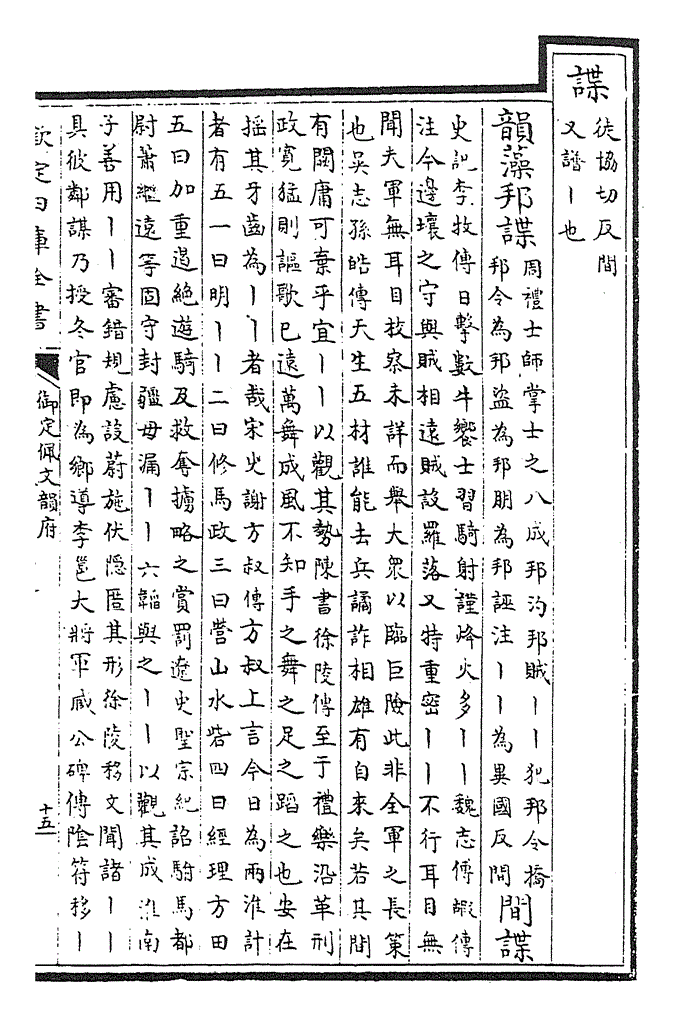 諜
徒協切反間
又譜丨也
韻藻邦諜
周禮士師掌士之八成邦汋邦賊丨丨犯邦令撟
邦令為邦盜為邦朋為邦誣注丨丨為異國反間
間諜
史記李牧傳日擊數牛饗士習騎射謹烽火多丨丨魏志傅嘏傳
注今邊壤之守與賊相遠賊設羅落又特重密丨丨不行耳目無
聞夫軍無耳目技察未詳而舉大衆以臨巨險此非全軍之長策
也吳志孫皓傳天生五材誰能去兵譎詐相雄有自來矣若其間
有闕庸可棄乎宜丨丨以觀其勢陳書徐陵傳至于禮樂沿革刑
政寛猛則謳歌已遠萬舞成風不知手之舞之足之蹈之也安在
揺其牙齒為丨丨者哉宋史謝方叔傳方叔上言今日為兩淮計
者有五一曰明丨丨二曰修馬政三曰營山水砦四曰經理方田
五曰加重遏絶遊騎及救奪擄略之賞罰遼史聖宗紀詔駙馬都
尉蕭繼遠等固守封疆毋漏丨丨六韜與之丨丨以觀其成淮南
子善用丨丨審錯規慮設蔚施伏隠匿其形徐陵移文聞諸丨丨
具彼鄰謀乃授冬官即為鄉導李邕大將軍臧公碑傳陰符移丨
欽定四庫全書
御定佩文韻府
十五